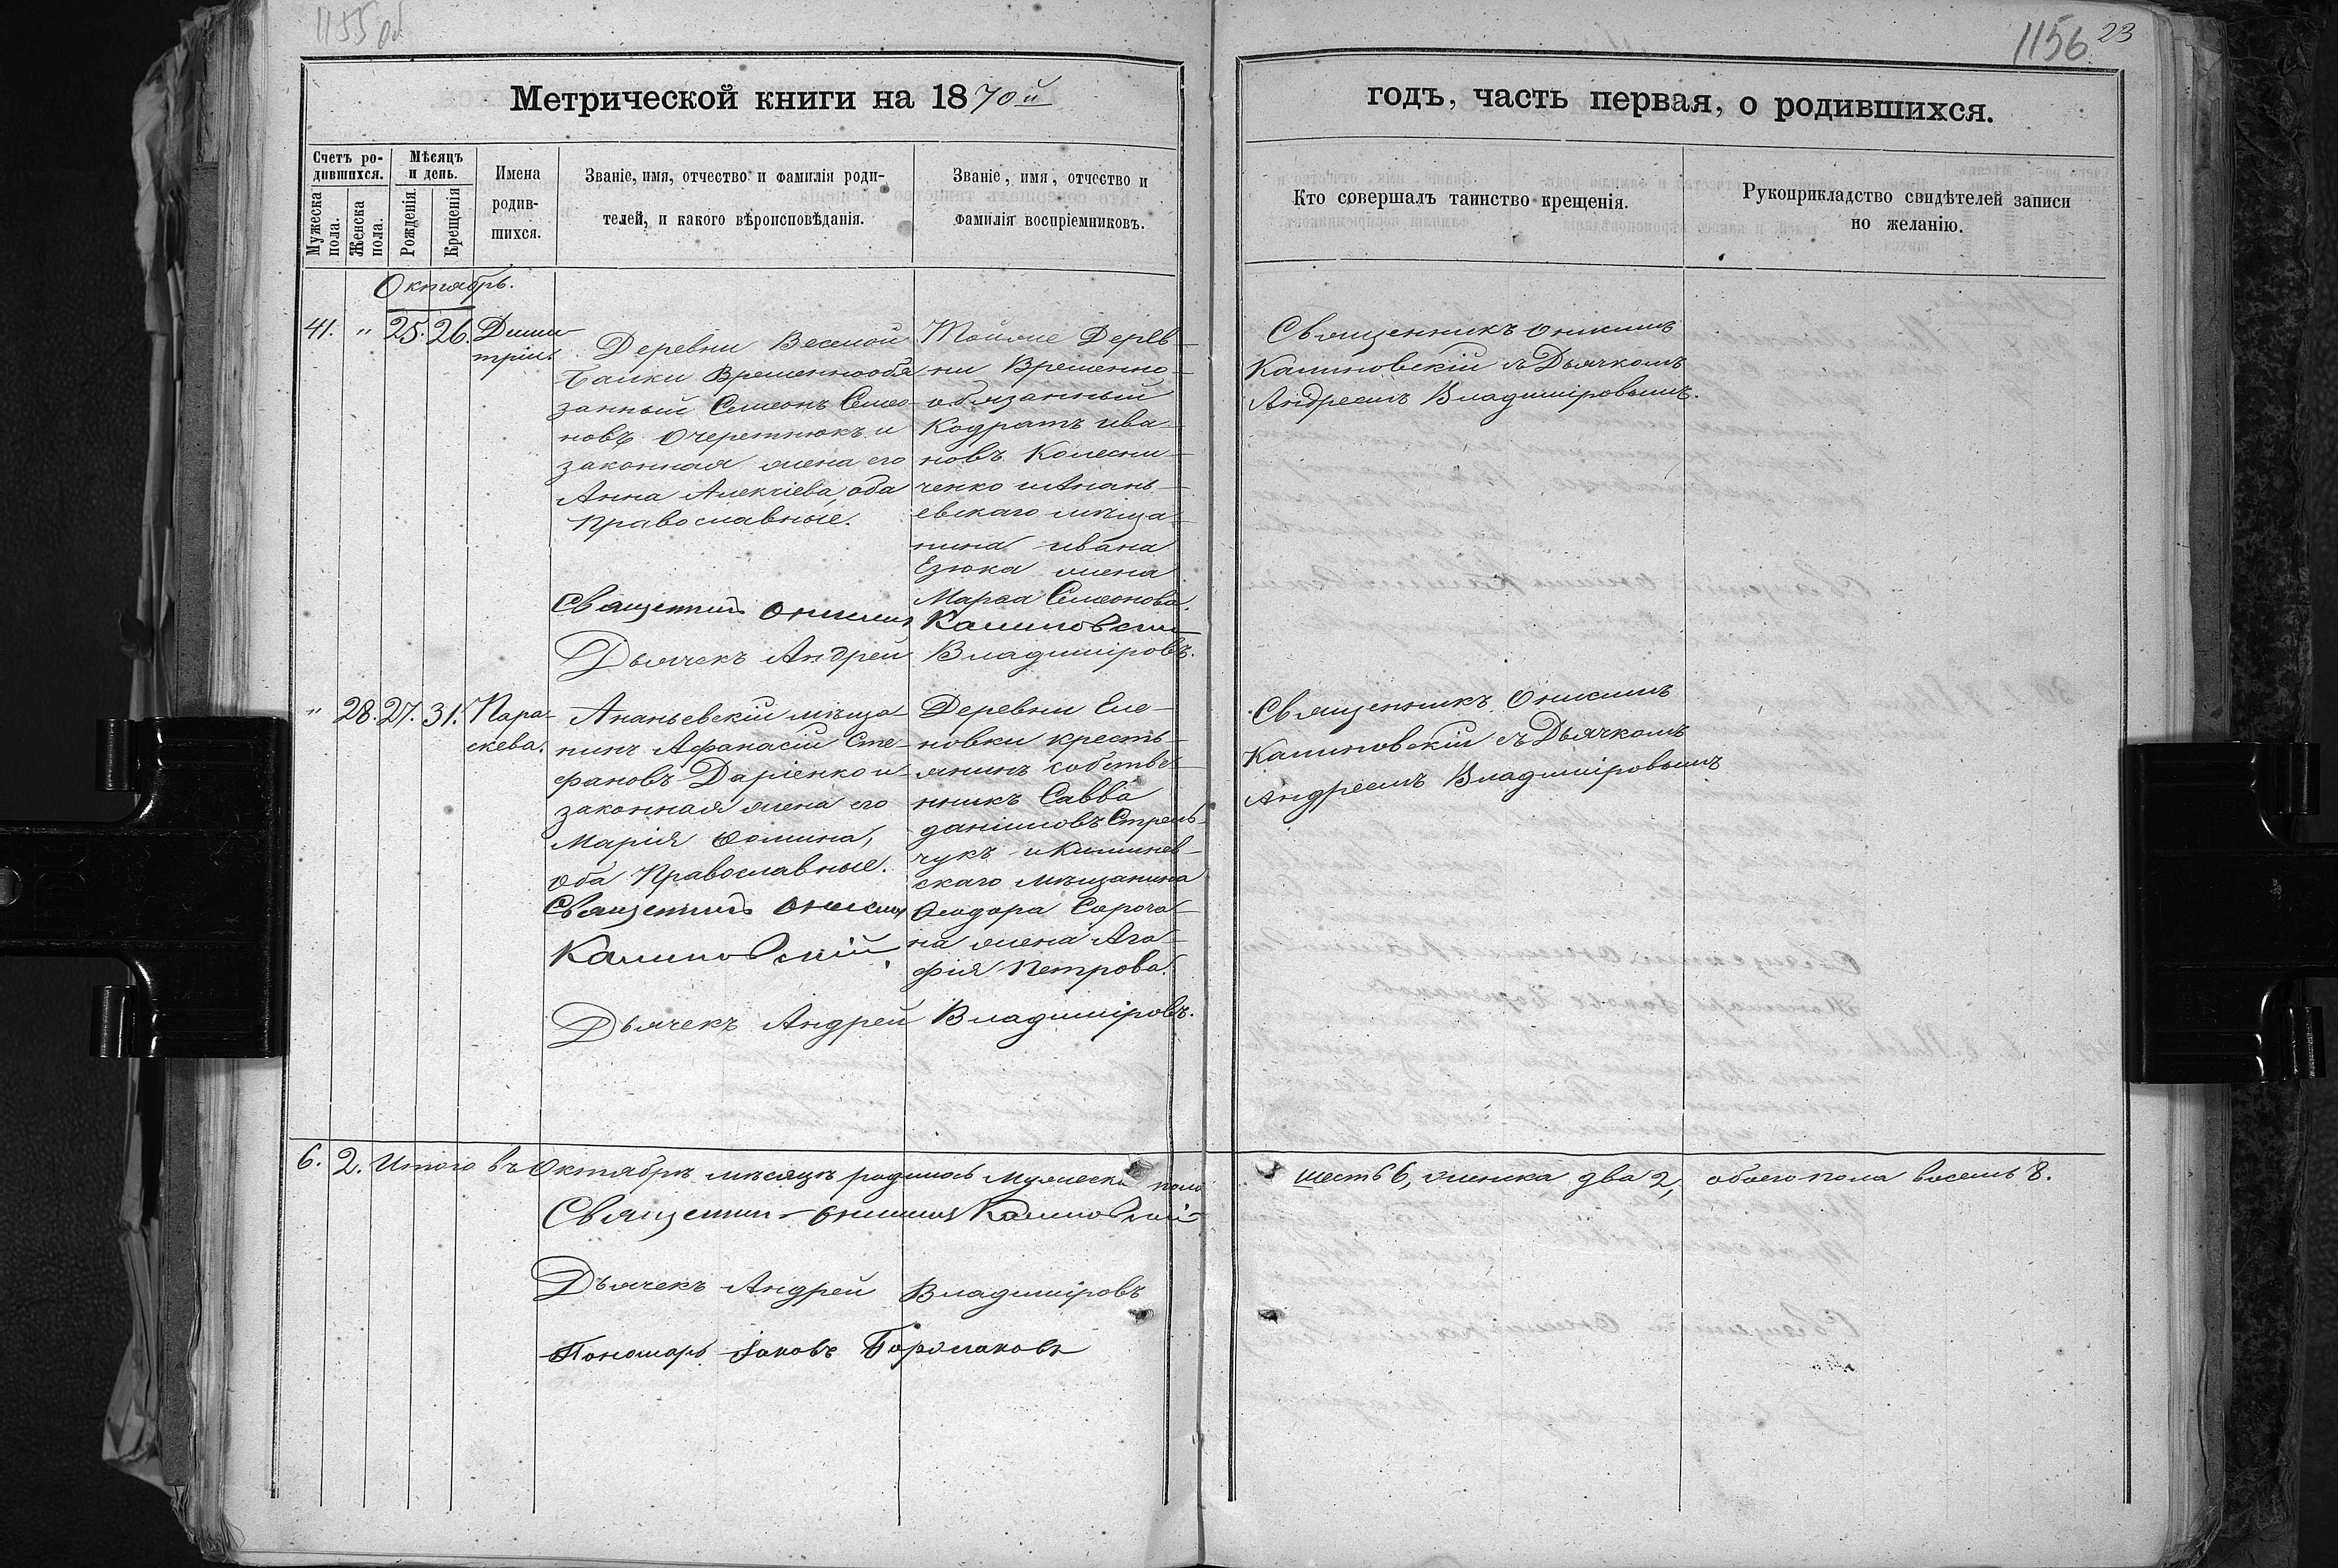 1155 об
Метрической книги на 1870й
Счетъ ро-
дившихся.
Мужеска пола.
Женска пола.
Мѣсяцъ
и день.
Рожденія.
Крещенія
Имена
родив-
шихся.
Званіе, имя, отчество и фамилія роди-
телей, и какого вѣроисповѣданія.
Званіе, имя, отчество и
фамилія воспріемниковъ.
Октябрь.
41. " 25. 26. Дими-
трій.
Деревни Веселой
Балки Временнообя
занный Симеонъ Симео
новъ Очеретнюкъ и
законная жена его
Анна Алексіева, оба
Православные.
Тойже Дерев-
ни Временно-
обязанный
Кодратъ Ива-
новъ Колесни-
ченко и Анань-
евскаго мѣща-
нина Ивана
Езюка жена
Марѳа Симеонова.
Священникъ Онисимъ Калиновскій
Дьячекъ Андрей Владиміровъ.
" 28. 27. 31. Пара-
скева.
Ананьевскій мѣща
нинъ Афанасій Сте-
фановъ Даріенко и
законная жена его
Марія Ѳомина,
оба Православные.
Деревни Еле-
новки кресть-
янинъ собстве
нникъ Савва
Даніиловъ Стрель-
чукъ и Кишинев-
скаго мѣщанина
Ѳеодора Сороча-
на жена Ага-
фія Петрова.
Священникъ Онисимъ
Калиновскій.
Дьячекъ Андрей Владиміровъ.
6. 2. Итого въ Октябрѣ мѣсяцѣ родилось Мужеска пола
Священникъ Онисимъ Калиновскій
Дьячекъ Андрей Владиміровъ
Пономарь Іаковъ
1156. 23
годъ, часть первая, о родившихся.
Кто совершалъ таинство крещенія.
Рукоприкладство свидѣтелей записи
по желанію.
Священникъ Онисимъ
Калиновскій съ Дьячкомъ
Андреемъ Владиміровымъ.
Священникъ Онисимъ
Калиновскій съ Дьячкомъ
Андреемъ Владиміровымъ
шесть 6, женска два 2, обоего пола восемь 8.